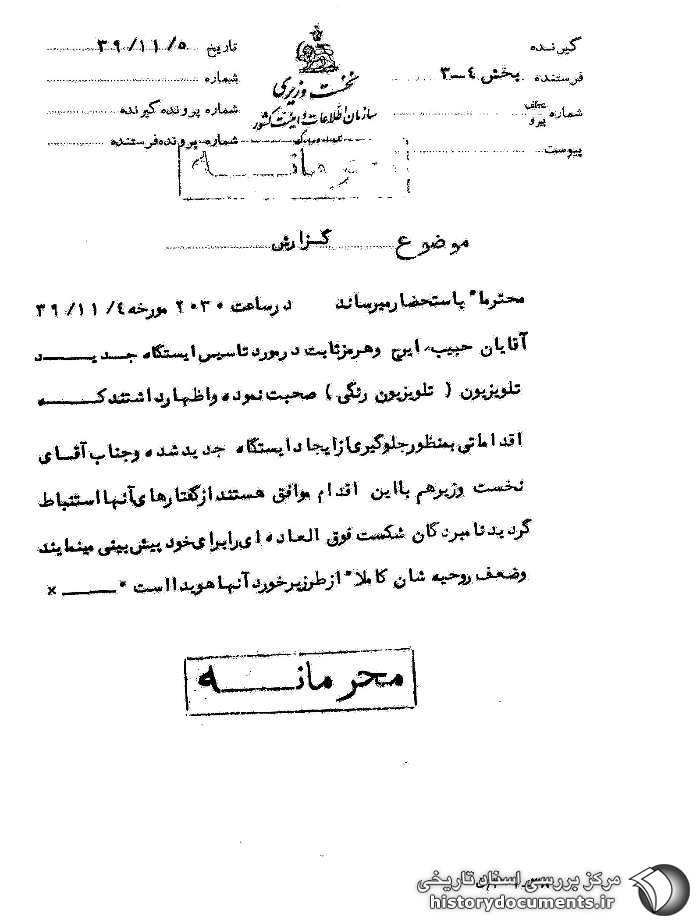 گیرنده
فرستنده بخش ۴-۳
شماره عطف پیرو
پیوست
نخست وزیری
سازمان اطلاعات و امنیت کشور
تاریخ ۳۹/۱۱/۵
شماره
شماره پرونده گیرنده
شماره پرونده فرستنده
محرمانه
موضوع گزارش
محترما" باستحضار میرساند در ساعت ۲۰۳۰ مورخه ۳۹/۱۱/۴
آقایان حبیب، ایرج و هرمز ثابت در مورد تاسیس ایستگاه جدید
تلویزیون ( تلویزیون رنگی ) صحبت نموده و اظهار داشتند که
اقداماتی بمنظور جلوگیری از ایجاد ایستگاه جدید شده و جناب آقای
نخست وزیر هم با این اقدام موافق هستند از گفتارهای آنها استنباط
گردید نامبردگان شکست فوق العاده ای را برای خود پیش بینی مینمایند
و ضعف روحیه شان کاملا" از طرز برخورد آنها هویدا است * ــــ ×
محرمانه
مرکز بررسی اسناد تاریخی
historydocuments.ir